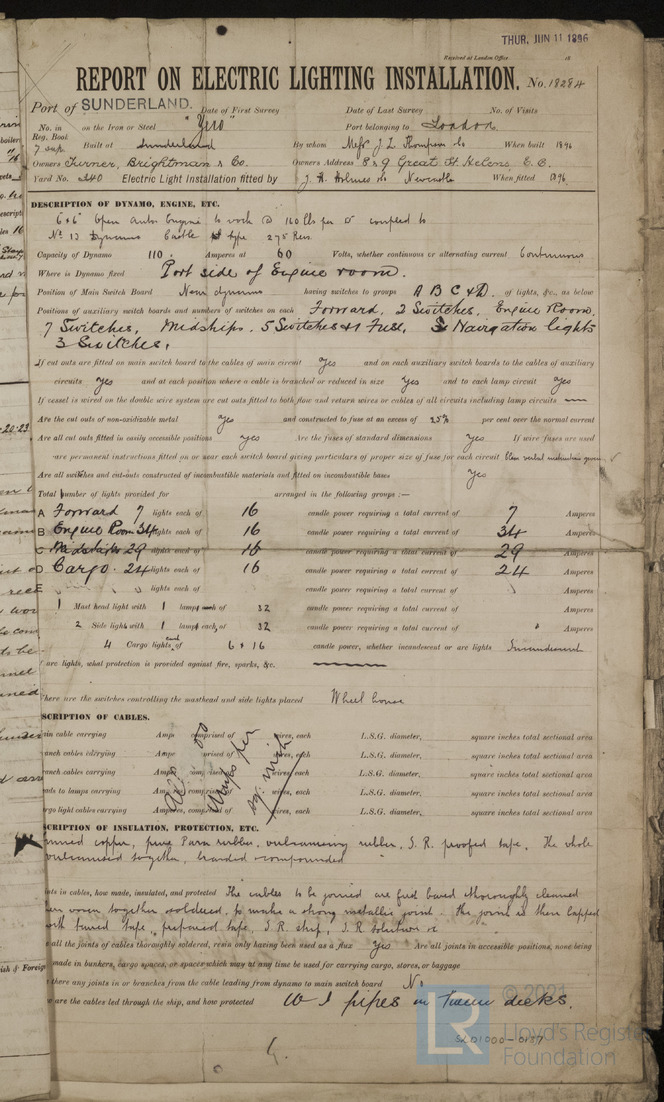 THUR, JUN 11 1896
Received at London Office 18
REPORT ON ELECTRIC LIGHTING INSTALLATION. No. 18284
Port of SUNDERLAND. Date of First Survey Date of Last Survey No. of Visits
No. in Reg. Book on the Iron or Steel " Port belonging to London
7 sup. Built at Sunderland By whom Messrs J L Thompson & Co When built 1896
Owners Turner, Brightman & Co. Owners Address 8 & 9 Great St Helens, E. C.
Yard No. 340 Electric Light Installation fitted by J. H. Holmes & Co Newcastle When fitted 1896
DESCRIPTION OF DYNAMO, ENGINE, ETC.
6 x 6" Open Auto Engine to work @ 110 lbs per □" coupled to
No 13 Dynamo Castle type 275 Revs.
Capacity of Dynamo 110 Amperes at 60 Volts, whether continuous or alternating current Continuous
Where is Dynamo fixed Port side of Engine room.
Position of Main Switch Board Near dynamo having switches to groups A B C & D. of lights, &c., as below
Positions of auxiliary switch boards and numbers of switches on each Forward, 2 Switches. Engine Room,
7 Switches, Midships. 5 Switches & 1 Fuse, Navigation lights
3 Switches,
If cut outs are fitted on main switch board to the cables of main circuit yes and on each auxiliary switch boards to the cables of auxiliary
circuits yes and at each position where a cable is branched or reduced in size yes and to each lamp circuit yes
If vessel is wired on the double wire system are cut outs fitted to both flow and return wires or cables of all circuits including lamp circuits —
Are the cut outs of non-oxidizable metal yes and constructed to fuse at an excess of 25% per cent over the normal current
Are all cut outs fitted in easily accessible positions yes Are the fuses of standard dimensions Yes If wire fuses are used
are permanent instructions fitted on or near each switch board giving particulars of proper size of fuse for each circuit verbal instructions given
Are all switches and cut-outs constructed of incombustible materials and fitted on incombustible bases Yes
Total number of lights provided for arranged in the following groups :—
A Forward 7 lights each of 16 candle power requiring a total current of 7 Amperes
B Engine Room 34 lights each of 16 candle power requiring a total current of 34 Amperes
C Midships 29 lights each of 16 candle power requiring a total current of 29 Amperes
D Cargo. 24 lights each of 16 candle power requiring a total current of 24 Amperes
E lights each of candle power requiring a total current of Amperes
1 Mast head light with 1 lamp each of 32 candle power requiring a total current of Amperes
2 Side light with 1 lamp each, of 32 candle power requiring a total current of " Amperes
4 Cargo lights each of 6 x 16 candle power, whether incandescent or arc lights Incandescent
f arc lights, what protection is provided against fire, sparks, &c. —
here are the switches controlling the masthead and side lights placed Wheel house
SCRIPTION OF CABLES.
ain cable carrying Amps comprised of wires, each L.S.G. diameter, square inches total sectional area
anch cables carrying Amps comprised of wires, each L.S.G. diameter, square inches total sectional area
anch cables carrying Amps, comprised of wires, each L.S.G. diameter, square inches total sectional area
ads to lamps carrying Amps, comprised of wires, each L.S.G. diameter, square inches total sectional area
rgo light cables carrying Amperes, comprised of wires, each L.S.G. diameter, square inches total sectional area
Amps per
sq. inch
SCRIPTION OF INSULATION, PROTECTION, ETC.
inned copper, pure Para rubber, vulcanising rubber, I. R. proofed tape. The whole
vulcanised together, braided & compounded
nts in cables, how made, insulated, and protected The cables to be joined are first bared thoroughly cleaned
then woven together & soldered, to make a strong metallic joint - the joint is then lapped
with tinned tape, prepared tape, I.R. strip, I.R. solution &c
all the joints of cables thoroughly soldered, resin only having been used as a flux Yes Are all joints in accessible positions, none being
made in bunkers, cargo spaces, or spaces which may at any time be used for carrying cargo, stores, or baggage
there any joints in or branches from the cable leading from dynamo to main switch board No
w are the cables led through the ship, and how protected W I pipes in tween decks.
© 2021
LR
Lloyd's Registe
Foundation
SLD1000-0187
20.23
ish & Foreign